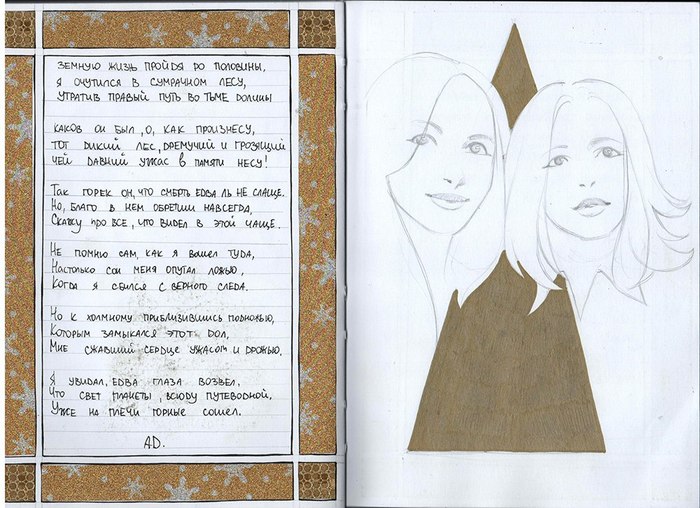 Земную жизнь пройдя до половины,
я очутился в сумрачном лесу,
утратив правый путь во тьме долины
каков он был, о, как произнесу,
тот дикий лес, дремучий и грозящий
чей давний ужас в памяти несу!
Так горек он, что смерть едва ль не слаще.
Но, благо в нем обретши навсегда,
Скажу про все, что видел в этой чаще.
Не помню сам, как я вошел туда,
Настолько сон меня опутал ложью,
Когда я сбился с верного следа.
Но к холмному приблизившись подножью,
Которым замыкался этот дол,
Мне сжавший сердце ужасом и дрожью.
Я увидал, едва глаза возвел,
Что свет планеты, всюду путеводной,
Уже на плечи горные сошел.
A.D.